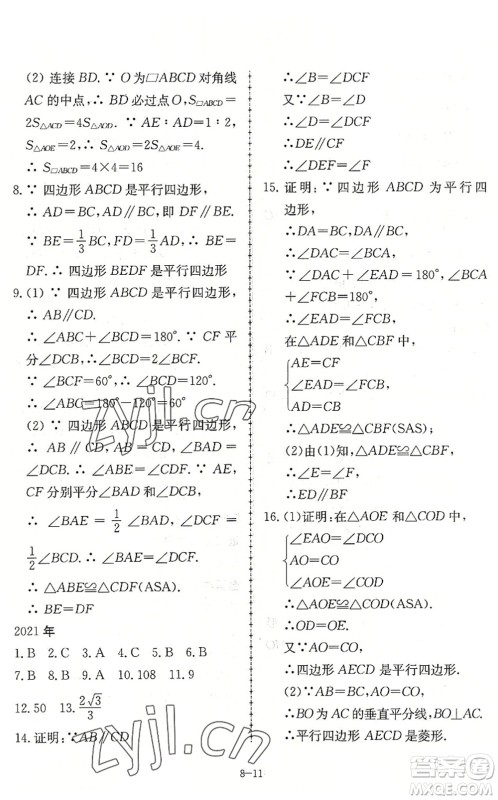 (2) 连接 BD. ∵ O为□ABCD对角线
AC的中点，∴ BD必过点O，S□ABCD=
2S△ACD=4S△AOD. ∵ AE∶AD=1∶2，
∴ S△AOD=2S△AOE=4.
∴ S□ABCD=4×4=16
8. ∵ 四边形 ABCD 是平行四边形，
∴ AD=BC，AD∥BC，即DF∥BE.
∵ BE=1/3 BC，FD=1/3 AD，∴ BE=
DF. ∴ 四边形 BEDF 是平行四边形
9. (1) ∵ 四边形 ABCD 是平行四边形，
∴ AB∥CD.
∴ ∠ABC+∠DCB=180°. ∵ CF 平
分∠DCB，∴ ∠DCB=2∠BCF.
∵ ∠BCF=60°，∴ ∠DCB=120°.
∴ ∠ABC=180°-120°=60°
(2) ∵ 四边形 ABCD 是平行四边形，
∴ AB∥CD，AB=CD，∠BAD=
∠DCB. ∴ ∠ABE=∠CDF. ∵ AE，
CF 分别平分∠BAD 和∠DCB，
∴ ∠BAE = 1/2 ∠BAD，∠DCF =
1/2 ∠BCD. ∴ ∠BAE=∠DCF.
∴ △ABE≌△CDF(ASA).
∴ BE=DF
2021 年
1. B 2. C 3. A 4. B 5. B 6. C
7. B 8. B 9. A 10. 108 11. 9
12. 50 13. 2√3/3
14. 证明：∵AB∥CD，
∴∠B=∠DCF
又∵∠B=∠D
∴∠D=∠DCF
∴DE∥CF
∴∠DEF=∠F
15. 证明：∵ 四边形 ABCD 为平行四
边形，
∴DA=BC，DA∥BC
∴∠DAC=∠BCA
∵∠DAC+∠EAD=180°，∠BCA+
∠FCB=180°
∴∠EAD=∠FCB，
在△ADE 和△CBF 中，
AE=CF
∠EAD=∠FCB，
AD=CB
∴△ADE≌△CBF(SAS)；
(2)由(1)知，△ADE≌△CBF，
∴∠E=∠F，
∴ED∥BF
16. (1)证明：在△AOE 和△COD 中，
∠EAO=∠DCO
AO=CO
∠AOE=∠COD
∴△AOE≌△COD(ASA)，
∴OD=OE.
又∵AO=CO，
∴四边形 AECD 是平行四边形.
(2)∵AB=BC，AO=CO，
∴BO 为 AC 的垂直平分线，BO⊥AC.
∴平行四边形 AECD 是菱形.
8-11
zyjl.cn
答案圈
MXQE.COM